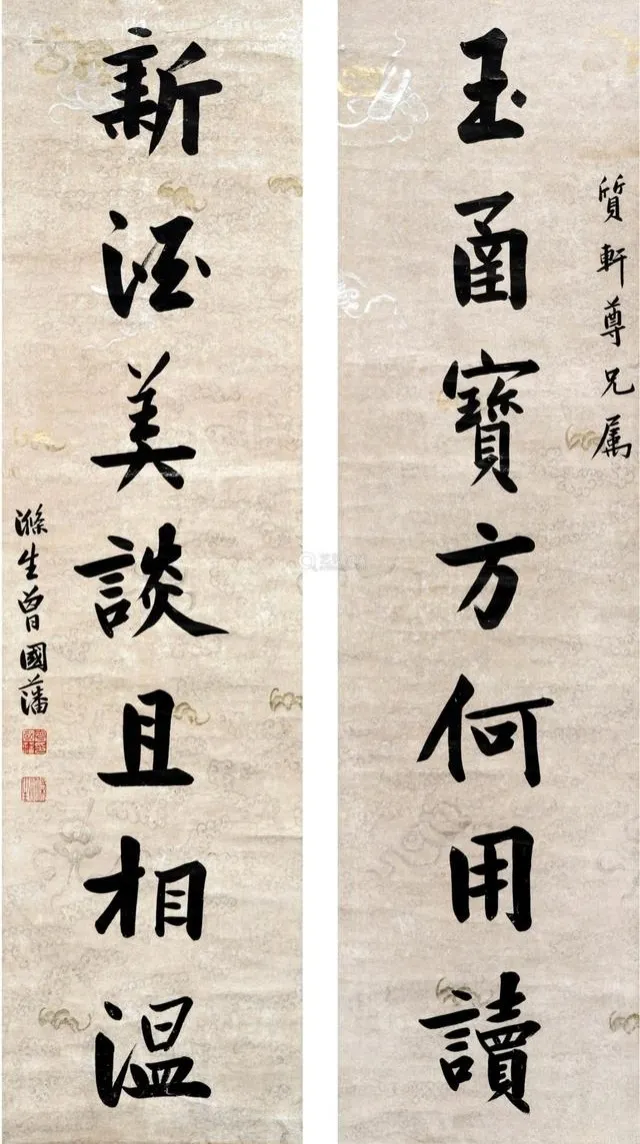 質軒尊兄属
玉函寶方何用讀
新酒美談且相温
滌生曾國藩